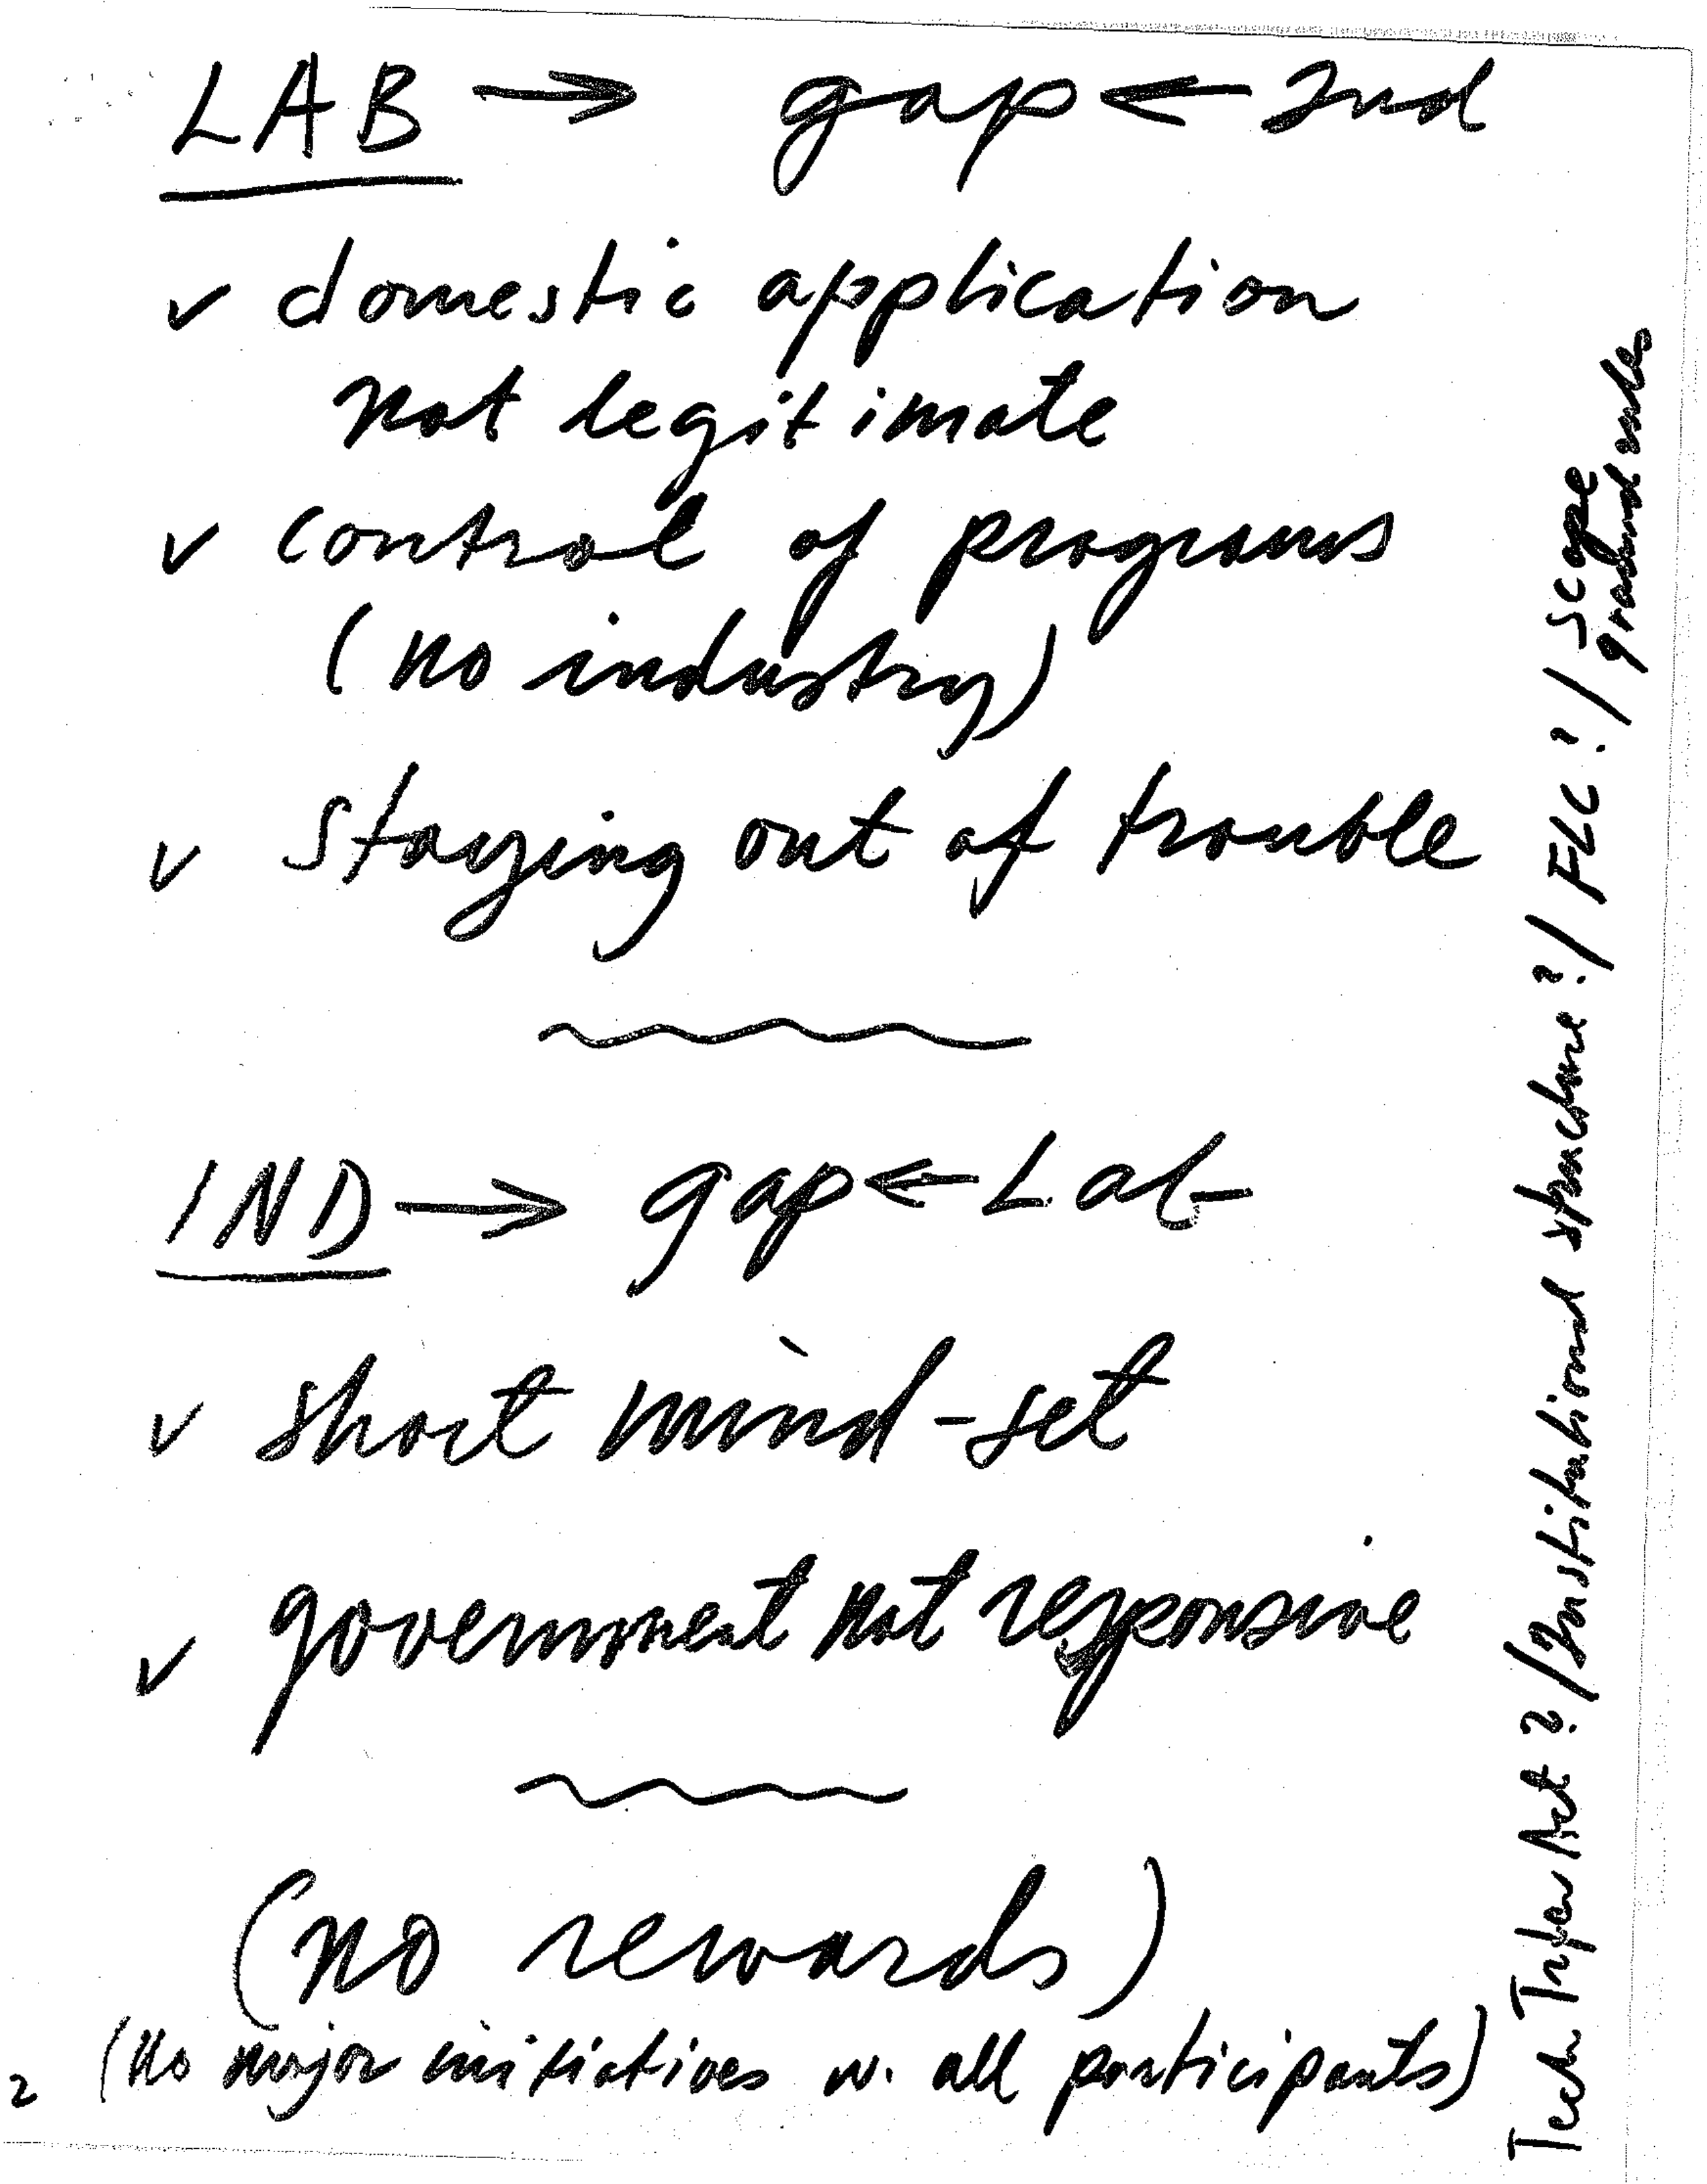 LAB → gap ← Ind
✓ domestic application
not legitimate
✓ control of programs
(no industry)
✓ staying out of trouble
IND → gap ← Lab
✓ short mind-set
✓ government not responsive
(no rewards)
2 (no major initiatives w. all participants)
Tech Trfer Act ? / Institutional structure ? / FLC ? / scope
ground rules